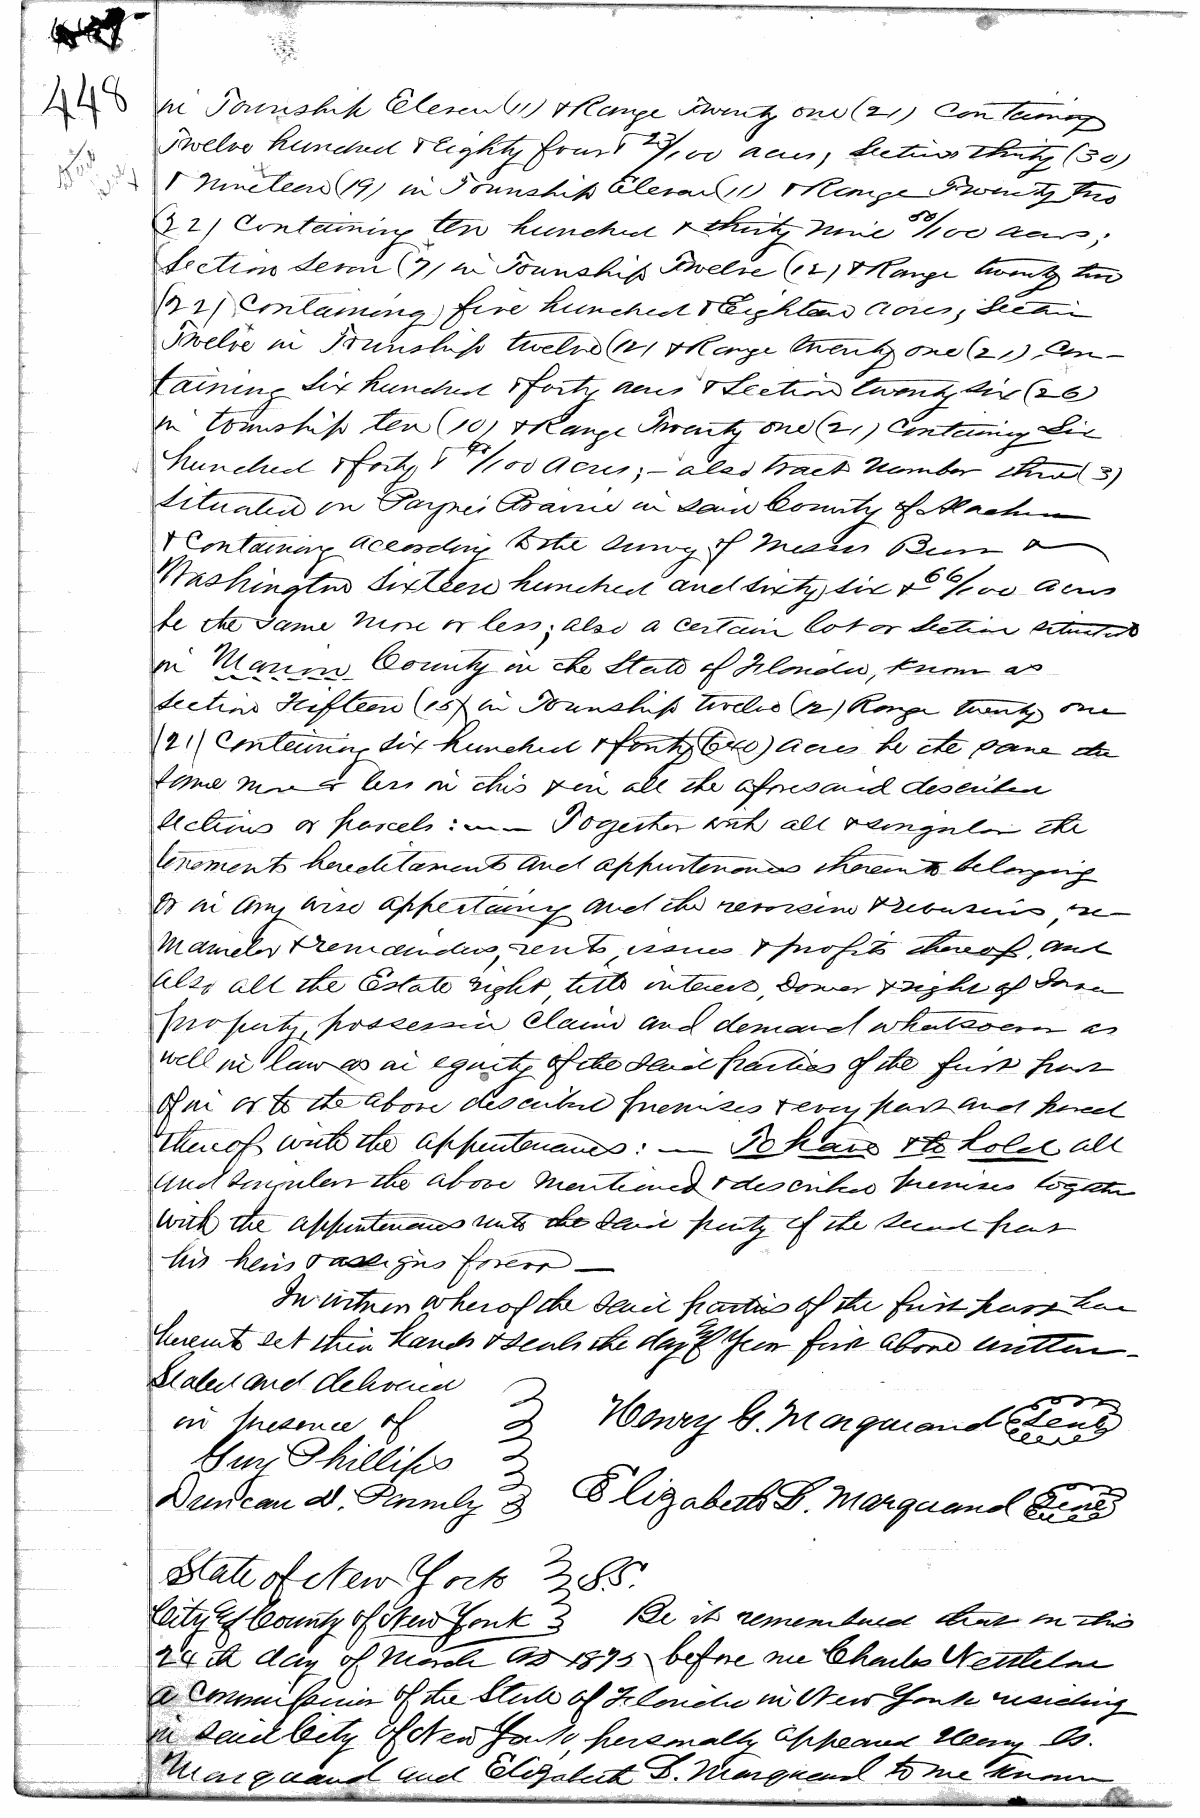 448
in Township Eleven (11) & Range Twenty one (21) Containing
Twelve hundred & Eighty four & 23/100 acres, Section thirty (30)
& Nineteen (19) in Township Eleven (11) & Range Twenty two
(22) Containing ten hundred & thirty nine 50/100 acres;
Section Seven (7) in Township Twelve (12) & Range twenty two
(22) Containing five hundred & Eighteen acres, Section
Twelve in Township twelve (12) & Range twenty one (21) Con-
taining Six hundred & forty acres & Section twenty six (26)
in township ten (10) & Range Twenty one (21) Containing Six
hundred & forty & /100 acres; - also tract Number three (3)
situated on Paynes Prairie in said County of Alachua
& Containing according to the survey of Messrs Burr &
Washington Sixteen hundred and sixty six & 66/100 acres
be the same more or less; also a certain lot or Section situated
in Marion County in the State of Florida, known as
Section Fifteen (15) in Township twelve (12) Range twenty one
(21) Containing six hundred & forty (640) acres be the same the
same more or less in this & in all the aforesaid described
sections or parcels: — Together with all & singular the
tenements hereditaments and appurtenances thereunto belonging
or in any wise appertaining and the reversion & reversions, re-
mainder & remainders, rents, issues & profits thereof, and
also all the Estate right, title interest, Dower & right of Dower
property, possession claim and demand whatsoever as
well in law as in equity of the said parties of the first part
of in or to the above described premises & every part and parcel
thereof with the appurtenances: — To have & to hold all
and singular the above mentioned & described premises together
with the appurtenances unto the said party of the second part
his heirs & assigns forever —
In witness whereof the said parties of the first part have
hereunto set their hands & seals the day & Year first above written -
Sealed and delivered
in presence of
Henry G. Marquand Seal
Guy Phillips
Duncan D. Parmly
Elizabeth L. Marquand Seal
State of New York SS.
City & County of New York Be it remembered that on this
24th day of March AD 1875 before me Charles Nettleton
a Commissioner of the State of Florida in New York residing
in said City of New York, personally appeared Henry G.
Marquand and Elizabeth L. Marquand to me known